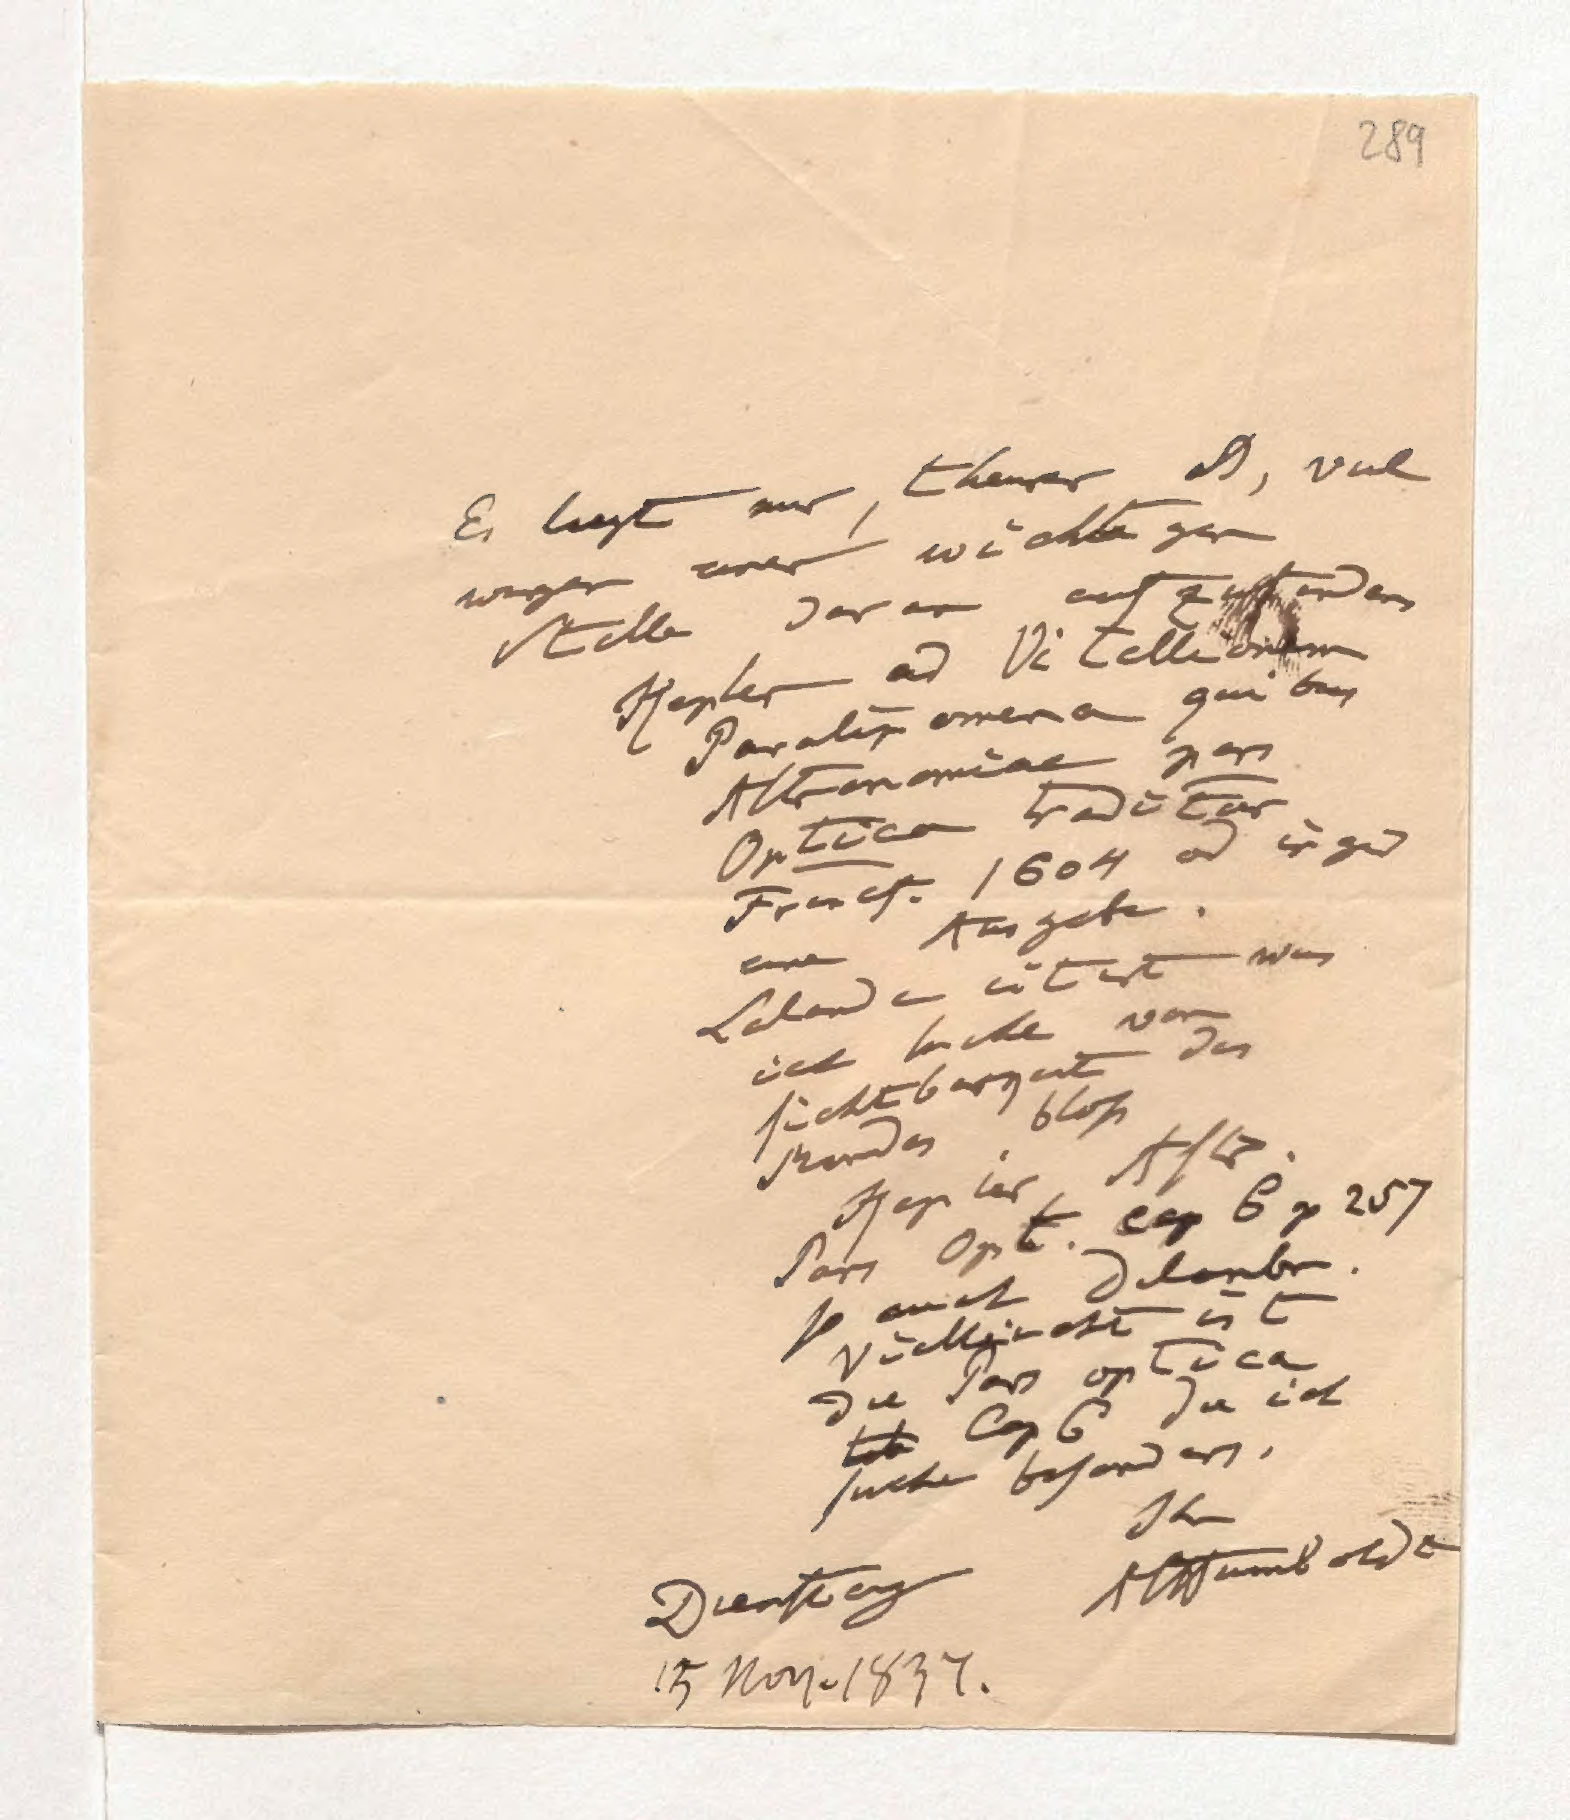 289
Es liegt mir, theurer D, viel
wegen einer wichtigen
Stelle daran aufzufinden
Kepler ad Vitellionem
Paralipomena quibus
Astronomiae pars
Optica traditur
Francf. 1604 od irgd
eine Ausgabe.
Lalande citirt was
ich suche von
Sichtbarkeit des
Mondes blos
Kepler Astr.
Pars Opt. cap 6 p 257
so auch Delambre.
Vielleicht ist
die Pars optica
Cap 6 die ich
suche besonders.
Ihr
AlHumboldt
Dienstag
15 Nov. 1837.